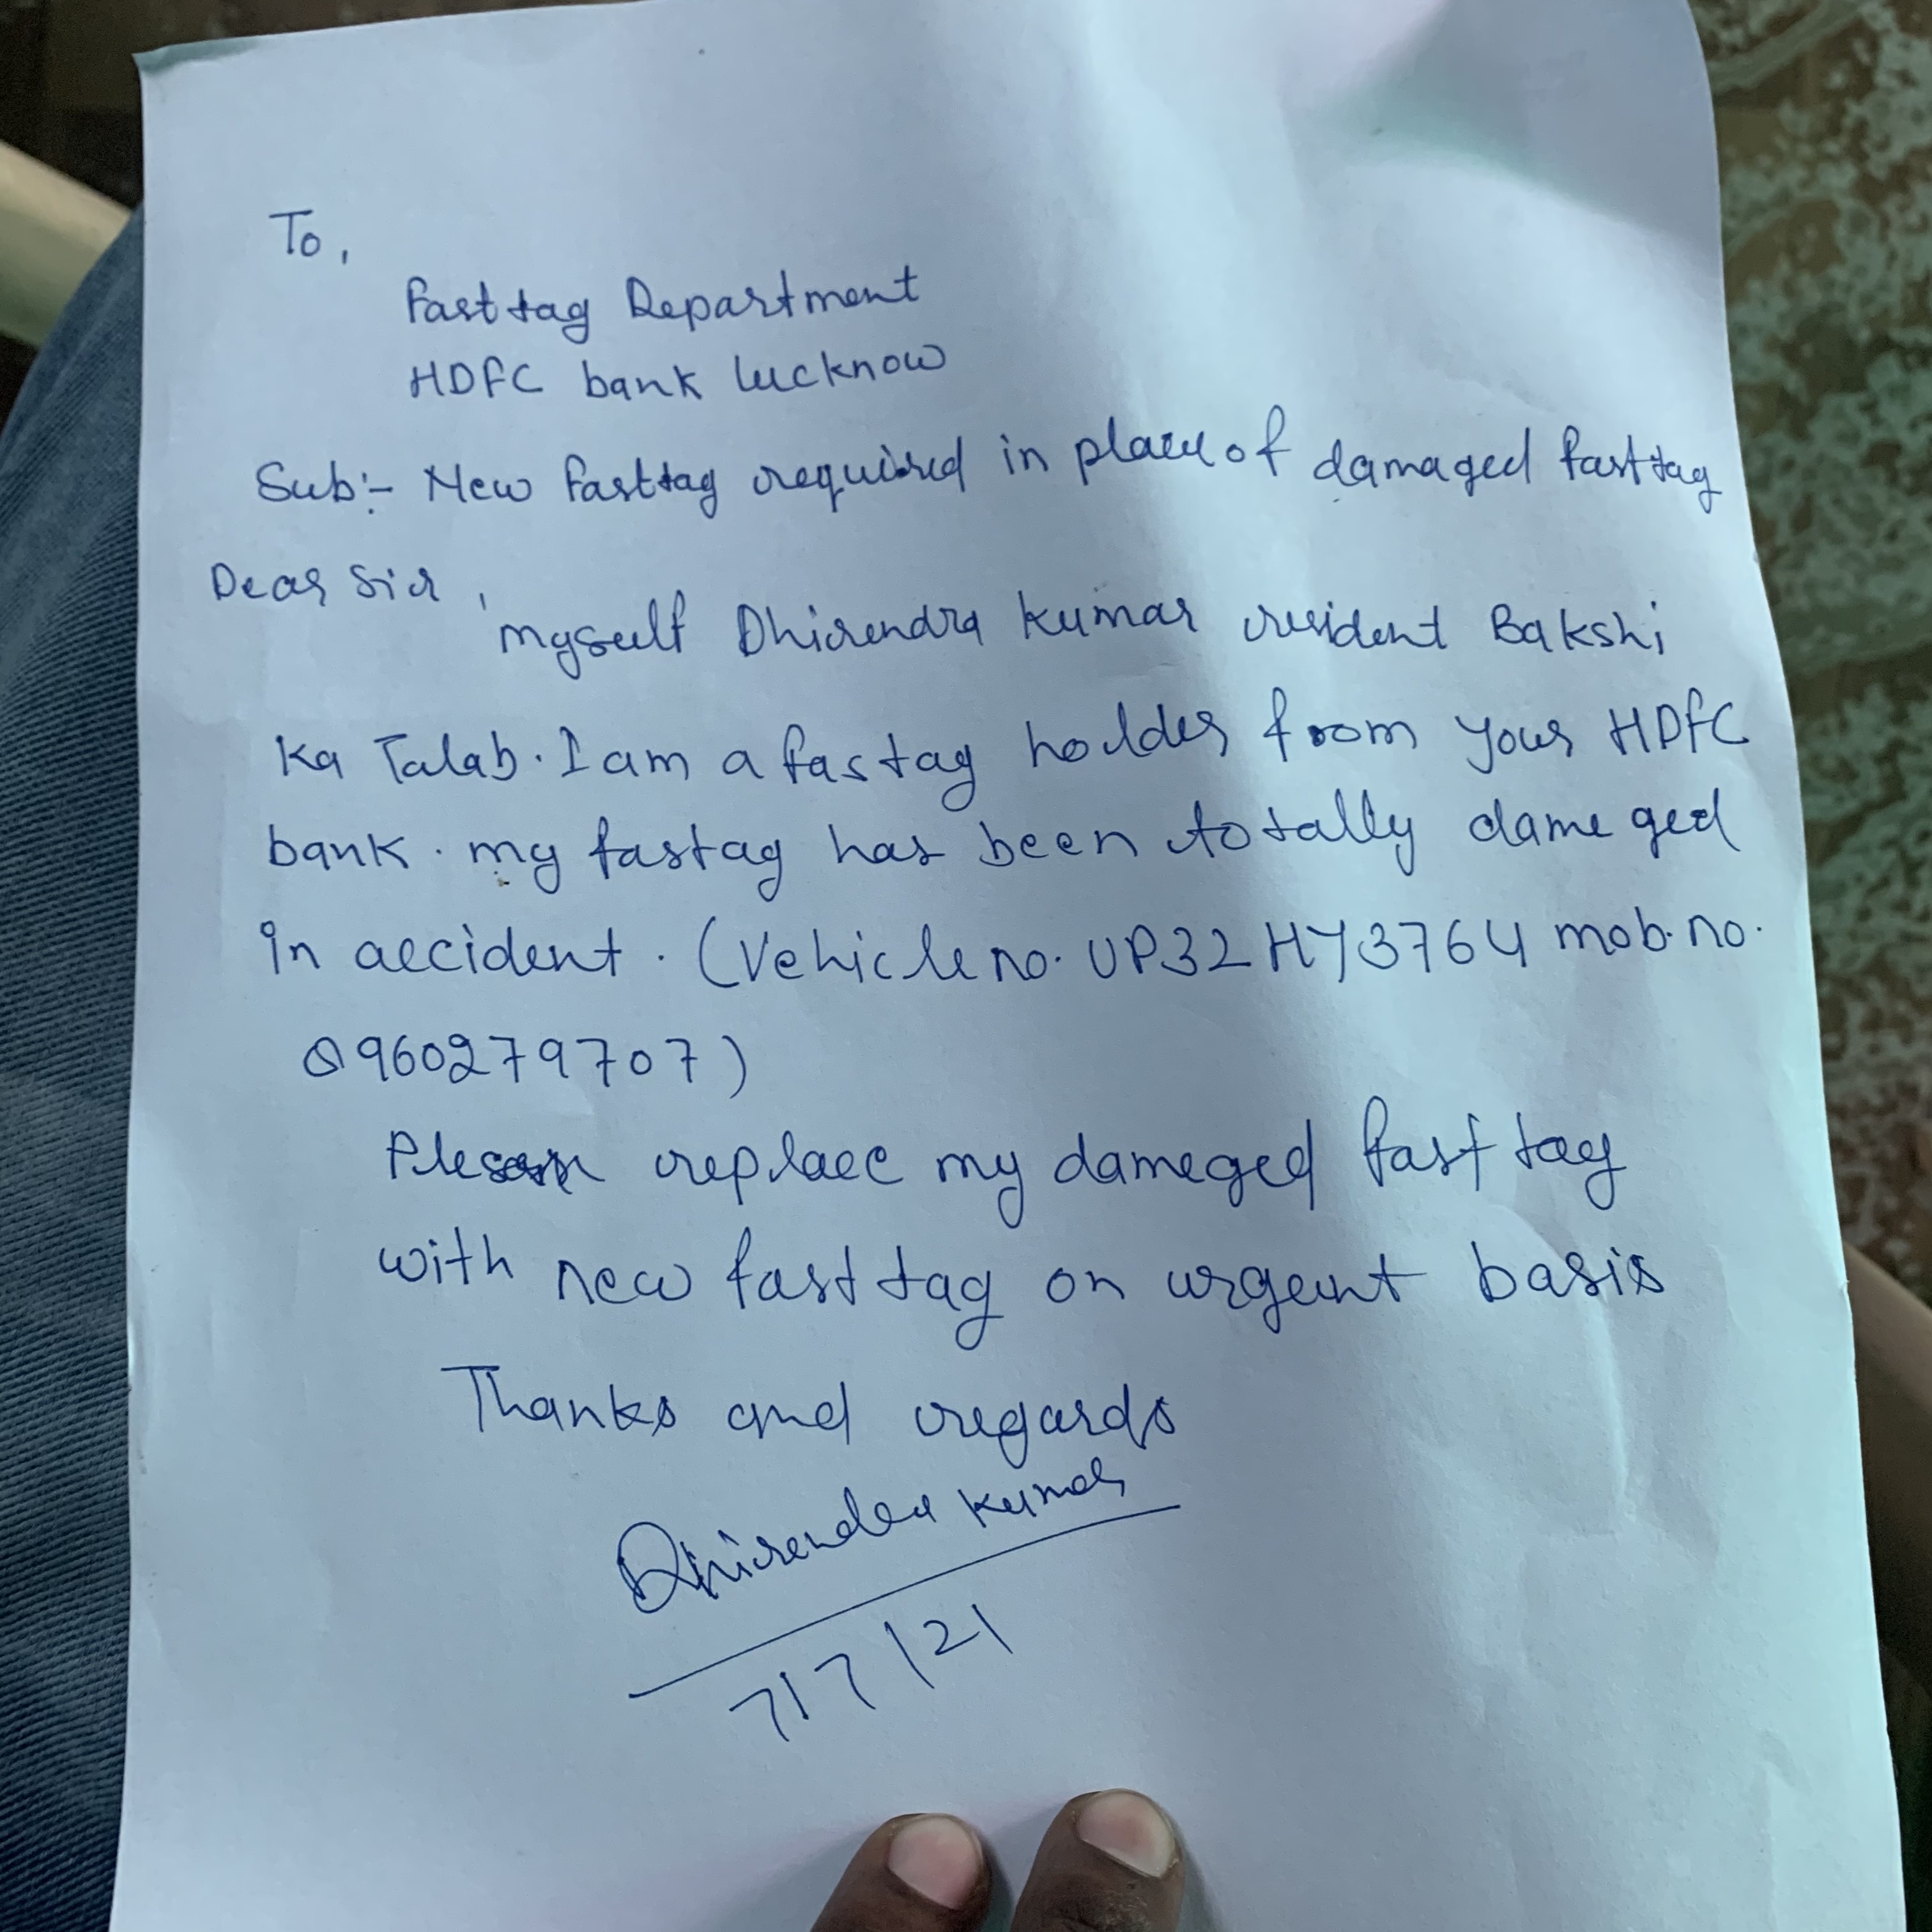 To,
Fasttag Department
HDFC bank lucknow
Sub:- New Fasttag required in place of damaged fasttag
Dear Sir,
myself Dhirendra Kumar resident Bakshi
Ka Talab. I am a fastag holder from your HDFC
bank. my fastag has been totally dameged
in accident. (Vehicle no. UP32HY3764 mob. no.
960279707)
replace my dameged fast tag
with new fast tag on urgent basis
Thanks and regards
Dhirendra Kumar
7/7/21